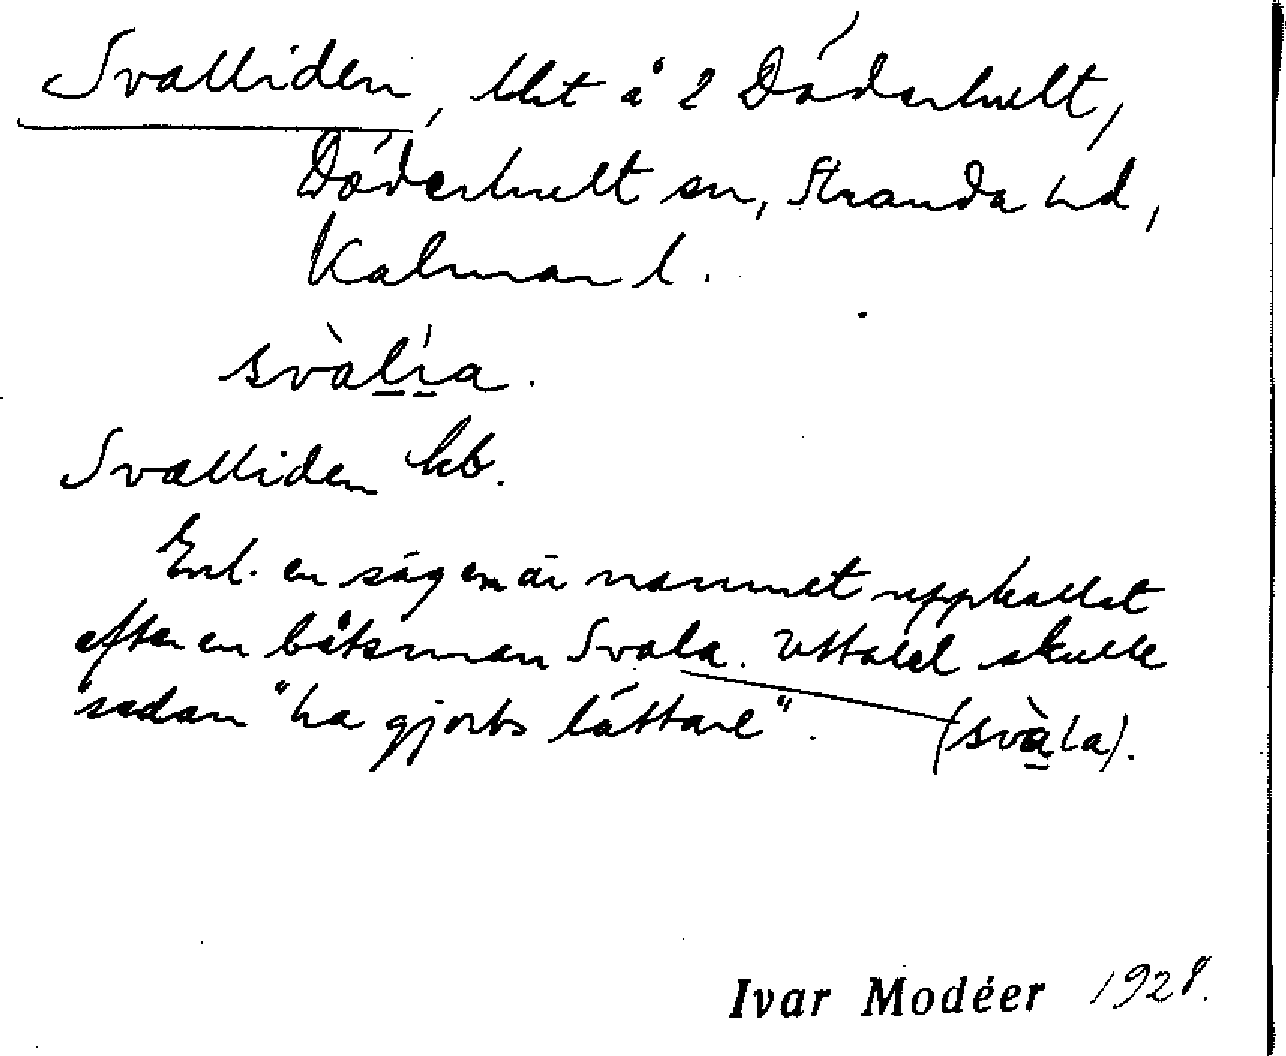 Svalliden, lht å 2 Döderhult,
Döderhult sn, Stranda hd,
Kalmar l.
svàlía.
Svalliden kb.
Enl. en sägen är namnet uppkallat
efter en båtsman Svala. Uttalet skulle
sedan "ha gjorts lättare". (svàla).
Ivar Modéer 1928.